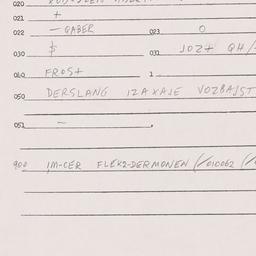 020
021 +
022 – GABER 023 O
030 $ 031 JOZ+ QH/
040 FROS+ 1
050 DERSLANG IZAXAJE VOZBAJST
051 –
900 IM-CER FLEKZ-DERMONEN (/010062 (/